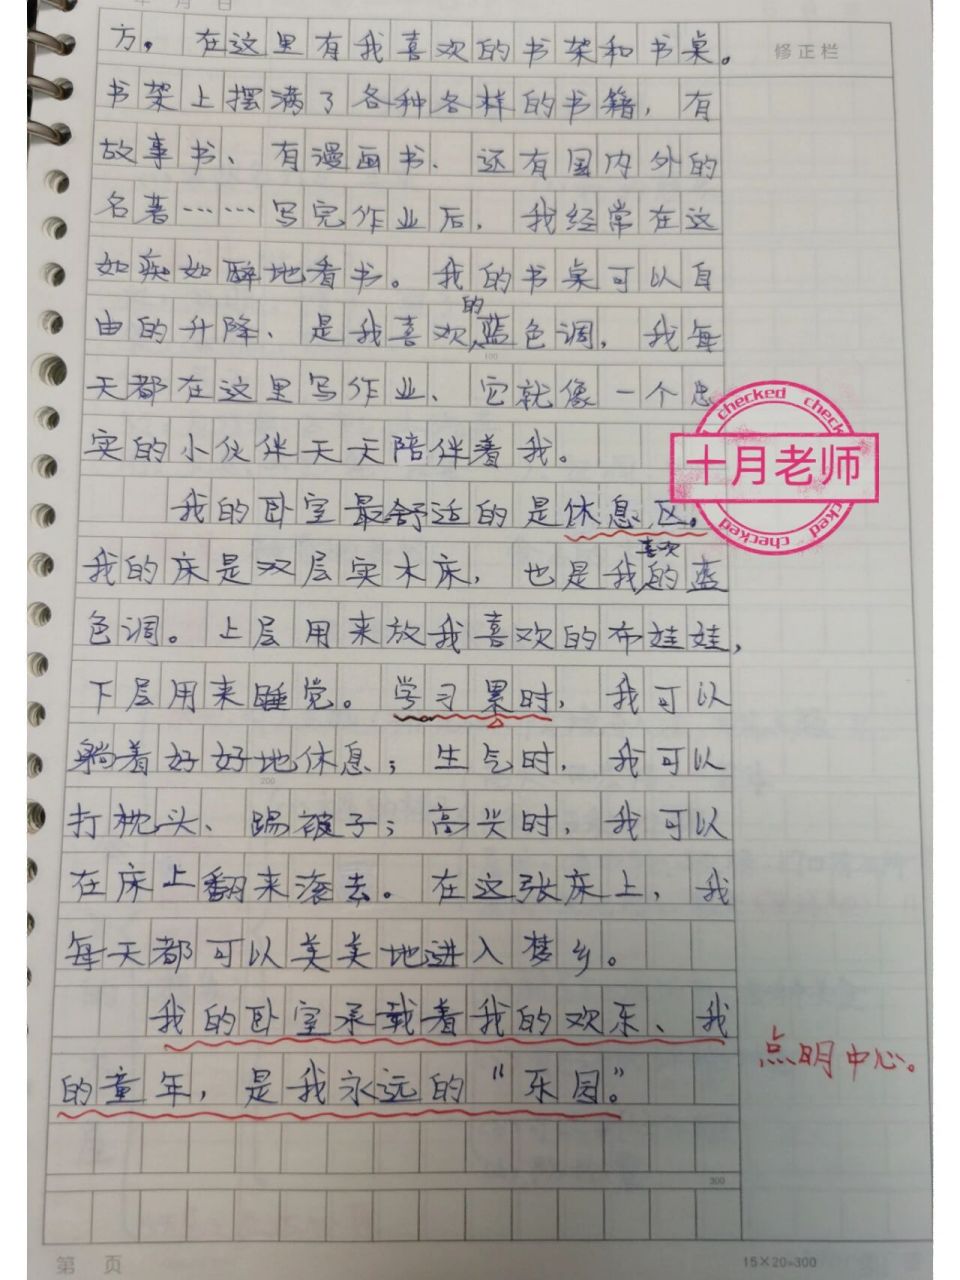 年 月 日
方。在这里有我喜欢的书架和书桌。
修正栏
书架上摆满了各种各样的书籍，有
故事书、有漫画书、还有国内外的
名著……写完作业后，我经常在这
如痴如醉地看书。我的书桌可以自
由的升降、是我喜欢的蓝色调，我每
100
天都在这里写作业、它就像一个忠
实的小伙伴天天陪伴着我。
checked checked
十月老师
checked checked
我的卧室最舒适的是休息区。
我的床是双层实木床，也是我喜欢的蓝
色调。上层用来放我喜欢的布娃娃，
下层用来睡觉。学习累时，我可以
躺着好好地休息；生气时，我可以
200
打枕头、踢被子；高兴时，我可以
在床上翻来滚去。在这张床上，我
每天都可以美美地进入梦乡。
我的卧室承载着我的欢乐、我
的童年，是我永远的“乐园”。
点明中心。
300
第 页
15×20=300